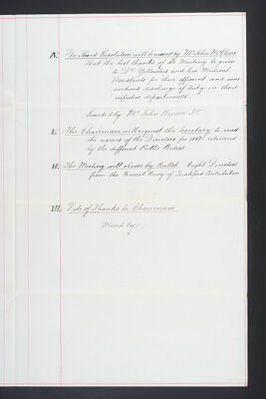 IV. The Third Resolution will be moved by Mr John McClure
That the best thanks of the Meeting be given
to Dr Yellowlees and his Medical
Assistants for their efficient and
discharge of duty in their
respective departments.
Seconded by Mr John
V. The Chairman will request the Secretary to read
the names of the Directors for 1882 returned
by the different Public Bodies
VI. The Meeting will choose by Ballot Eight Directors
from the General Body of Qualified Contributors
VII. Vote of Thanks to Chairman
Moved by